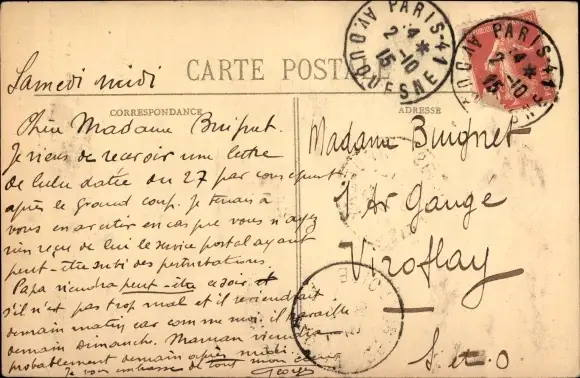 PARIS-41
AV. DUQUESNE
2-10
15
PARIS-41
AV. DUQUESNE
2-10
15
CARTE POSTALE
CORRESPONDANCE
ADRESSE
Samedi midi
Chère Madame Buignet.
Je viens de recevoir une lettre
de Lulu datée du 27 par conséquent
après le grand coup. Je tenais à
vous en avertir en cas que vous n'ayez
rien reçu de lui le service postal ayant
peut-être subi des perturbations.
Papa viendra peut-être ce soir et
s'il n'est pas trop mal et il reviendrait
demain matin car comme moi il travaille
demain Dimanche. Maman viendra
probablement demain après midi.
Je vous embrasse de tout mon cœur
Georges
Madame Buignet
Av Gaugé
Viroflay
S et O